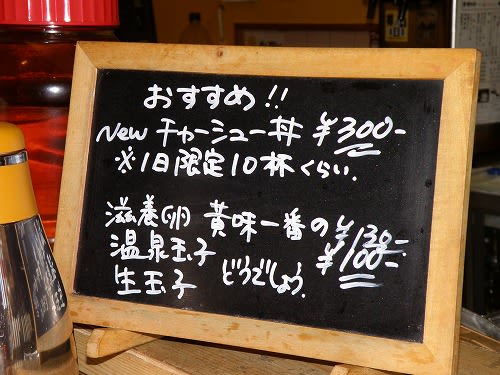 おすすめ!!
New チャーシュー丼 ¥300-
※1日限定10杯くらい.
滋養卵 黄味一番の
温泉玉子 ¥130-
生玉子 ¥100-
どうでしょう.